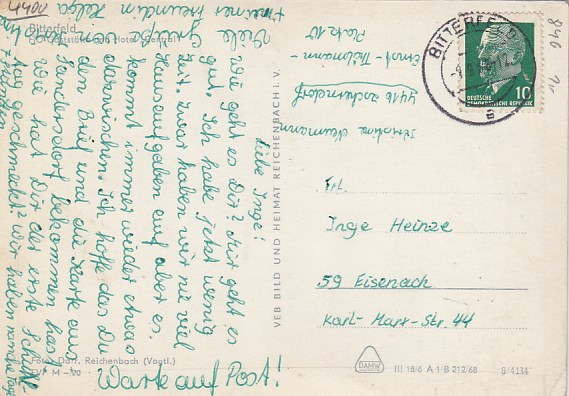 4400
Bitterfeld
Viele Grüße von
+ meiner Freundin Helga
Liebe Inge!
Wie geht es Dir? Mir geht es
gut. Ich habe jetzt wenig
Zeit. Zwar haben wir nie viel
Hausaufgaben auf, aber es
kommt immer wieder etwas
dazwischen. Ich hoffe das Du
den Brief und die Karte aus
Sandersdorf bekommen hast
Wie hat Dir der erste Schul-
tag geschmeckt? Wir haben manche Tage
Stunden
Warte auf Post!
Foto: Darr, Reichenbach (Vogtl.)
VEB BILD UND HEIMAT REICHENBACH i. V.
Neumann
4416 Zscherndorf
Ernst-Thälmann-
Platz 10
BITTERFELD
a
10
DEUTSCHE
DEMOKRATISCHE REPUBLIK
846
Frl.
Inge Heinze
59 Eisenach
Karl-Marx-Str. 44
DAMW
III 18/6 A 1 B 212/68
8/4134